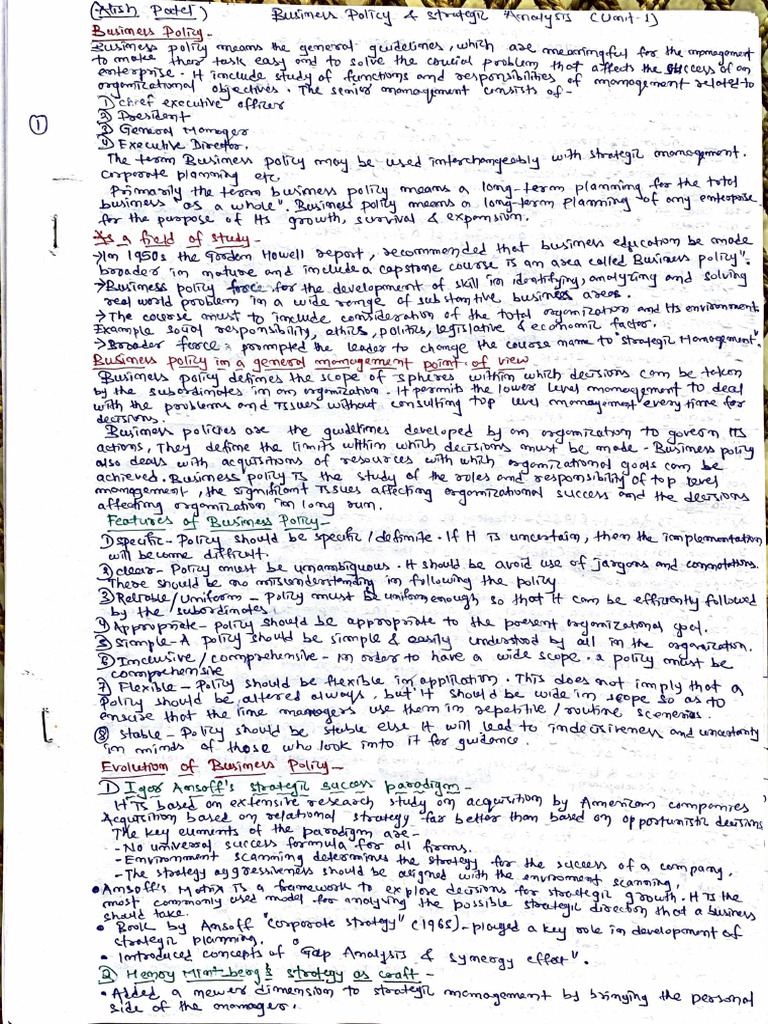 (Atish Patel)
Business Policy & Strategic Analysis (Unit-1)
Business Policy -
Business policy means the general guidelines, which are meaningful for the management
to make their task easy and to solve the crucial problem that affects the success of an
enterprise. It include study of functions and responsibilities of management related to
organizational objectives. The senior management consists of -
① Chief executive officer
② President
③ General Manager
④ Executive Director.
①
The term Business policy may be used interchangeably with strategic management.
Corporate planning etc.
Primarily the term business policy means a long-term planning for the total
business "as a whole". Business policy means a long-term planning of any enterprise
for the purpose of its growth, survival & expansion.
As a field of study -
→ In 1950s the Gordon Howell report, recommended that business education be made
broader in nature and include a capstone course is an area called Business policy".
→ Business policy force for the development of skill in identifying, analyzing and solving
real world problem in a wide range of substantive business areas.
→ The course must to include consideration of the total organization and its environment.
Example social responsibility, ethics, politics, legislative & economic factor.
→ Broader force: prompted the leader to change the course name to "Strategic Management".
Business policy in a general management point of view
Business policy defines the scope of spheres within which decisions can be taken
by the subordinates in an organization. It permits the lower level management to deal
with the problems and issues without consulting top level management every time for
decisions.
Business policies are the guidelines developed by an organization to govern its
actions, They define the limits within which decisions must be made. Business policy
also deals with acquisitions of resources with which organizational goals can be
achieved. Business policy is the study of the roles and responsibility of top level
management, the significant issues affecting organizational success and the decisions
affecting organization in long run.
Features of Business Policy -
① specific - Policy should be specific/definite. If it is uncertain, then the implementation
will become difficult.
② clear - Policy must be unambiguous. It should be avoid use of jargons and connotations.
There should be no misunderstanding in following the policy
③ Reliable/Uniform - policy must be uniform enough so that it can be efficiently followed
by the subordinates.
④ Appropriate - policy should be appropriate to the present organizational goal.
⑤ Simple - A policy should be simple & easily understood by all in the organization.
⑥ Inclusive/comprehensive - In order to have a wide scope. a policy must be
comprehensive
⑦ Flexible - Policy should be flexible in application. This does not imply that a
policy should be altered always, but it should be wide in scope so as to
ensure that the line managers use them in repetitive/routine scenerios.
⑧ stable - Policy should be stable else it will lead to indecisiveness and uncertainty
in minds of those who look into it for guidance.
Evolution of Business Policy -
① Igor Ansoff's strategic success paradigm -
It is based on extensive research study on acquisition by American companies
Acquisition based on relational strategy far better than based on opportunistic decisions
The key elements of the paradigm are -
- No universal success formula for all firms.
- Environment scanning determines the strategy for the success of a company.
- The strategy aggressiveness should be aligned with the environment scanning.
• Ansoff's Matrix is a framework to explore decisions for strategic growth. It is the
most commonly used model for analysing the possible strategic direction that a business
should take.
• Book by Ansoff "Corporate strategy" (1965) - played a key role in development of
strategic planning.
• Introduced concepts of "Gap Analysis & synergy effect".
② Henry Mintzberg's strategy as craft -
• Added a newer dimension to strategic management by bringing the personal
side of the manager.